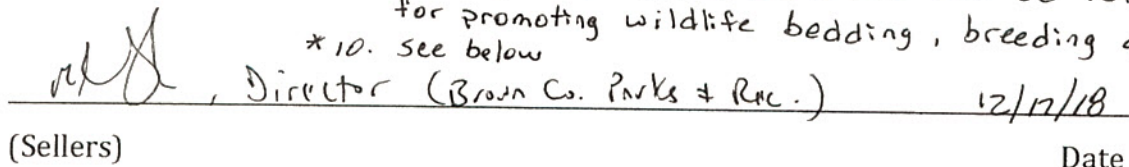 for promoting wildlife bedding, breeding
*10. see below
, Director (Brown Co. Parks & Rec.) 12/17/18
(Sellers) Date